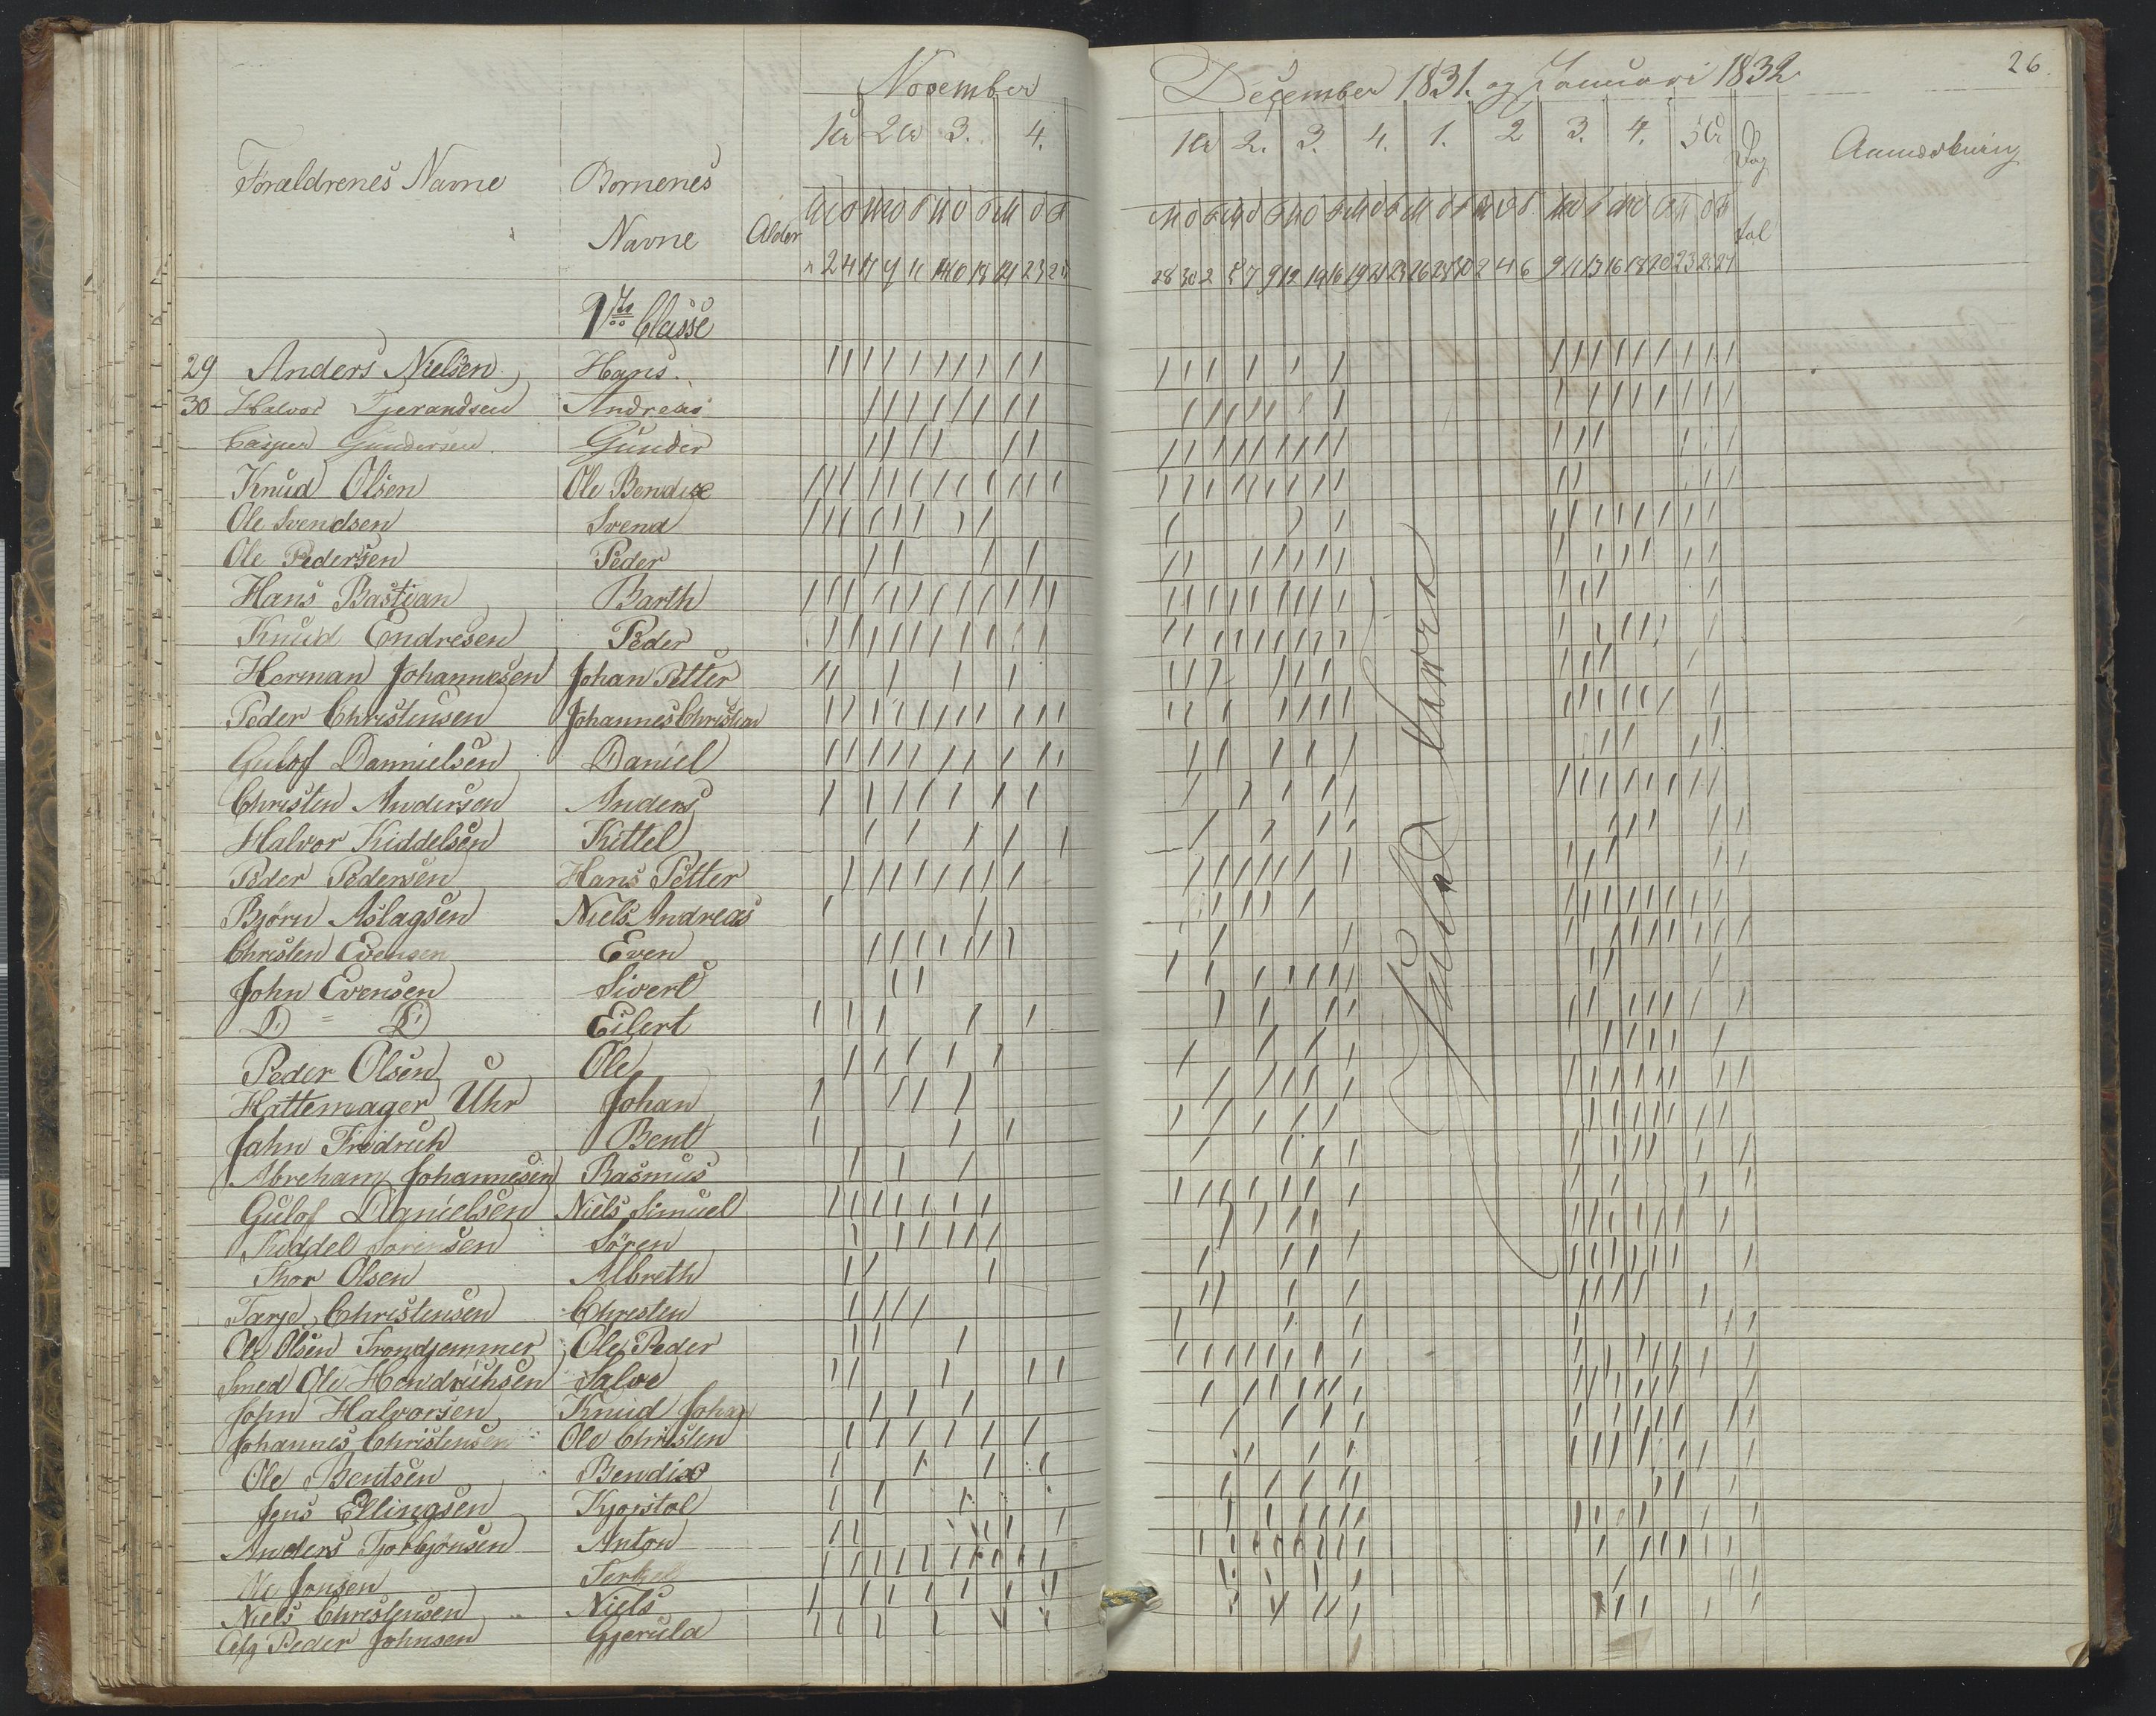 November
1te 2te 3. 4.
Forældrenes Navne Børnenes
Navne Alder
1ste Classe
29 Anders Nielsen Hans
30 Halvor Tjerandsen Andreas
Casper Gundersen Gunder
Knud Olsen Ole Bendix
Ole Svendsen Svend
Ole Pedersen Peder
Hans Bastian Barth
Knud Endresen Peder
Herman Johannesen Johan Petter
Peder Christensen Johannes Christian
Gulof Dannielsen Daniel
Christen Andersen Anders
Halvor Kiddelsen Kittel
Peder Pedersen Hans Petter
Bjørn Aslagsen Niels Andreas
Christen Evensen Even
John Evensen Sivert
D = D Eilert
Peder Olsen Ole
Hattemager Uhr Johan
Jahn Fredrich Bent
Abreham Johannesen Rasmus
Gulof Danielsen Niels Simuel
Kiddel Sørensen Søren
Thor Olsen Albreth
Tarje Christensen Christen
Ole Olsen Trondjemmer Ole Peder
Smed Ole Hendrichsen Salve
John Halvorsen Knud Johan
Johannes Christensen Ole Christen
Ole Bentsen Bendix
Jens Ellingsen Kjøstol
Anders Torbjønsen Anton
Ole Jonsen Terkel
Niels Christensen Niels
Peder Johnsen Gjeruld
26.
December 1831. og Januari 1832
1te 2. 3. 4. 1. 2 3. 4. 5te Dag
tal
28 30 2 5 7 9 12 14 16 19 21 23 26 28 30 2 4 6 9 11 13 16 18 20 23 25 27